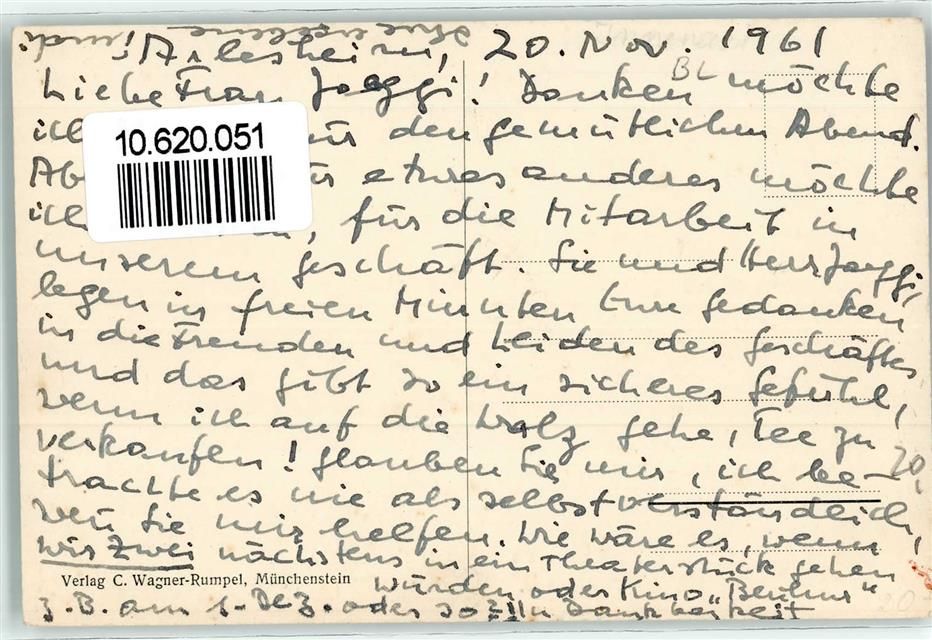 Arlesheim, 20. Nov 1961
BL
Liebe Frau Jaeggi! Danken möchte
ich für den gemütlichen Abend.
10.620.051
etwas anderes möchte
ich, für die Mitarbeit in
unserem Geschäft. Sie und Herr Jaeggi,
legen in freien Minuten Eure Gedanken
in die Freuden und Leiden des Geschäftes
und das gibt so ein sicheres Gefühl,
wenn ich auf die Walz gehe, Tee zu
verkaufen! Glauben Sie mir, ich be-
20,
trachte es nie als selbstverständlich,
wen Sie mir helfen. Wie wäre es, wenn
wir zwei nächstens in ein Theaterstück gehen
Verlag C. Wagner-Rumpel, Münchenstein
würden oder Kino
z.B. am 1. Dez. oder so? In Dankbarkeit